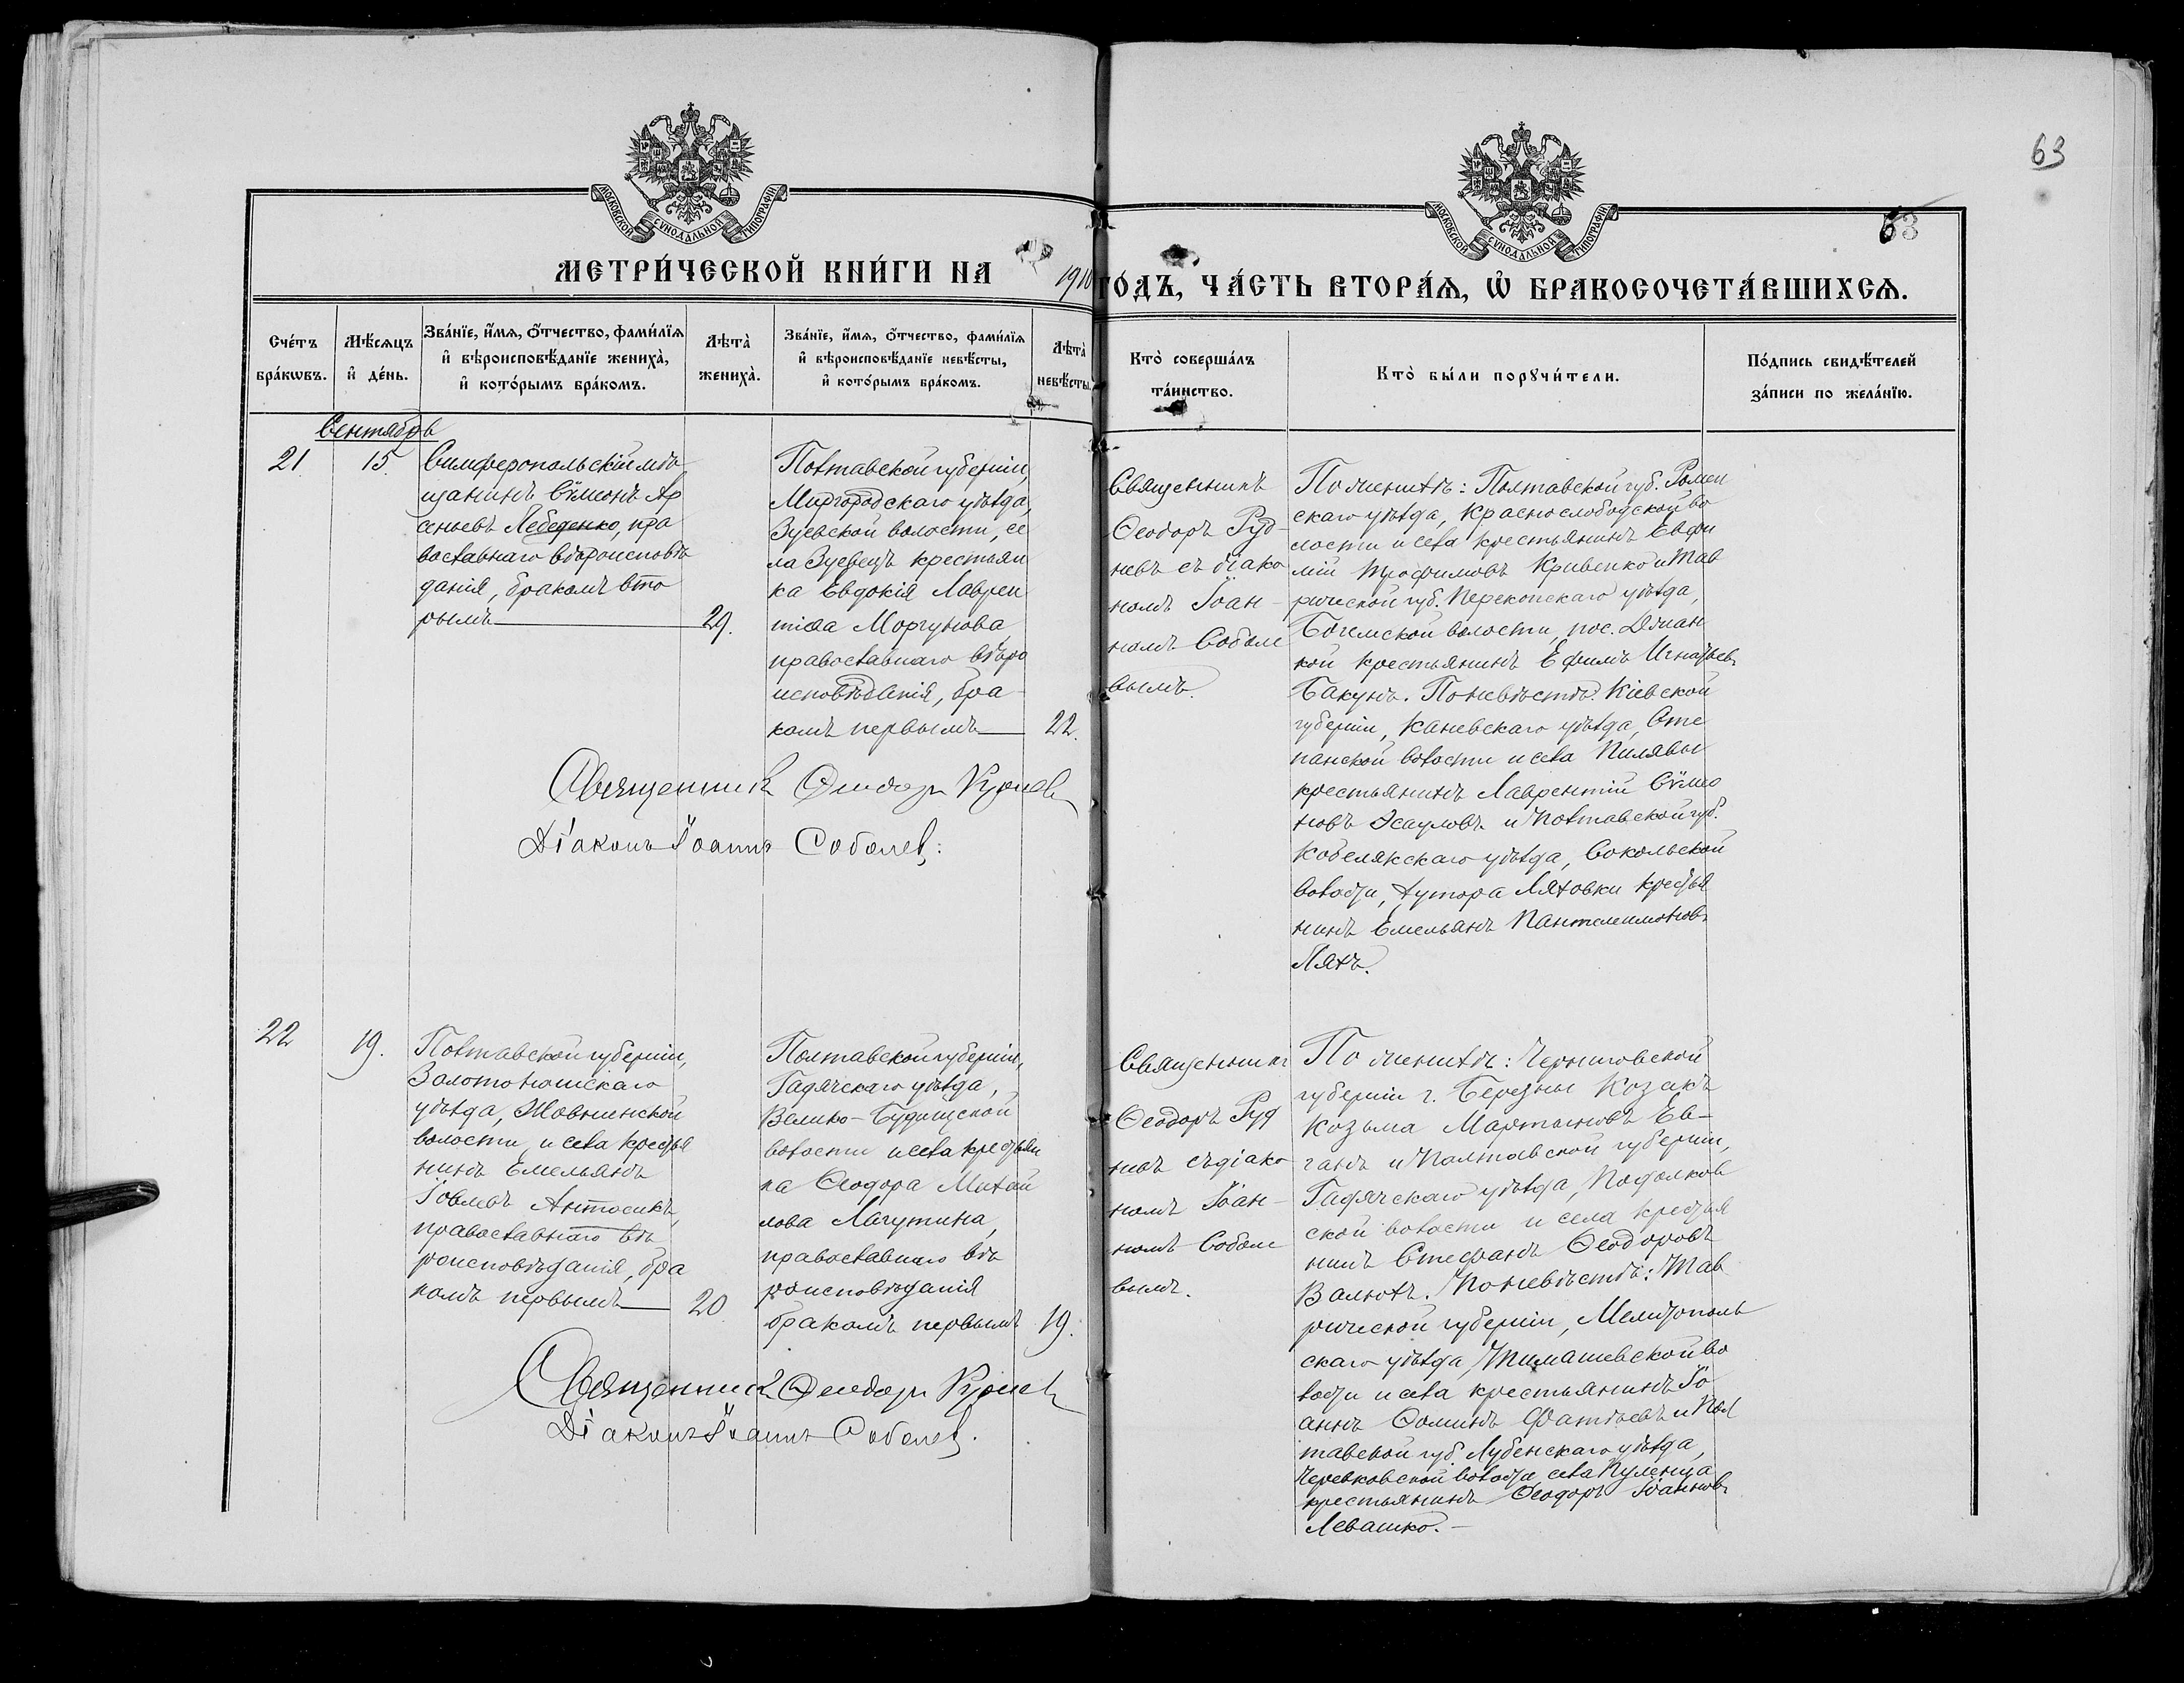 63
63
МОСКОВСКОЙ СѴНОДАЛЬНОЙ ТИПОГРАФІИ
МОСКОВСКОЙ СѴНОДАЛЬНОЙ ТИПОГРАФІИ
МЕТРИ́ЧЕСКОЙ КНИ́ГИ НА 1910 ГО́ДЪ, ЧА́СТЬ ВТОРА́Ѧ, Ѽ БРАКОСОЧЕТА́ВШИХСѦ.
Сче́тъ
бра́кѡвъ.
Мѣ́сѧцъ
и҆ де́нь.
Зва́нїе, и҆́мѧ, ѻ҆́тчество, фами́лїѧ
и҆ вѣроисповѣ́данїе жениха̀,
и҆ кото́рымъ бра́комъ.
Лѣта̀
жениха̀.
Зва́нїе, и҆́мѧ, ѻ҆́тчество, фами́лїѧ
и҆ вѣроисповѣ́данїе невѣ́сты,
и҆ кото́рымъ бра́комъ.
Лѣта̀
невѣ́сты.
Кто̀ соверша́лъ
та́инство.
Кто̀ бы́ли порꙋчи́тели.
По́дпись свидѣ́телей
за́писи по жела́нїю.
Сентябрь
21
15.
Симферопольскій мѣ
щанинъ Сѵмеонъ Ар
сеньевъ Лебеденко, пра
вославнаго вѣроисповѣ
данія, бракомъ вто
рымъ
29.
Полтавской губерніи,
Миргородскаго уѣзда,
Зуевской волости, се
ла Зуевецъ крестьян
ка Евдокія Лаврен
тіева Моргунова
православнаго вѣро
исповѣданія, бра
комъ первымъ
22.
Священникъ
Ѳеодоръ Руд
невъ съ діако
номъ Іоан
номъ Соболе
вымъ.
По женихѣ: Полтавской губ. Ромен
скаго уѣзда, Краснослободской во
лости и села крестьянинъ Евфи
мій Трофимовъ Кривенко и Тав
рической губ. Перекопскаго уѣзда,
Богемской волости, пос. Джан
кой крестьянинъ Ефимъ Игнатьевъ
Бакунъ. По невѣстѣ: Кіевской
губерніи, Каневскаго уѣзда, Сте
панской волости и села Пилявы
крестьянинъ Лаврентій Сѵмео
новъ Эсауловъ и Полтавской губ.
Кобелякскаго уѣзда, Сокольской
волости, хутора Ляховки крестья
нинъ Емельянъ Пантелеимоновъ
Ляхъ.
Священникъ Ѳеодоръ Рудневъ
Діаконъ Іоаннъ Соболевъ.
22
19.
Полтавской губерніи,
Золотоношскаго
уѣзда, Жовнинской
волости и села крестья
нинъ Емельянъ
Іовлевъ Антосикъ,
православнаго вѣ
роисповѣданія, бра
комъ первымъ
20
Полтавской губерніи,
Гадячскаго уѣзда,
Велико-Будищской
волости и села крестьян
ка Ѳеодора Михаи
лова Лагутина,
православнаго вѣ
роисповѣданія
бракомъ первымъ
19.
Священникъ
Ѳеодоръ Руд
невъ съ діако
номъ Іоан
номъ Соболе
вымъ.
По женихѣ: Черниговской
губерніи г. Березны Козакъ
Козьма Мартыновъ Ев
ганъ и Полтавской губерніи,
Гадячскаго уѣзда, Подолков
ской волости и села крестья
нинъ Стефанъ Ѳеодоровъ
Валюхъ. По невѣстѣ: Тав
рической губерніи, Мелитополь
скаго уѣзда, Тимашевской во
лости и села крестьянинъ Іо
аннъ Ѳоминъ Фатѣевъ и Пол
тавской губ. Лубенскаго уѣзда,
Черевковской волости, села
крестьянинъ Ѳеодоръ Іоанновъ
Левашко.
Священникъ Ѳеодоръ Рудневъ
Діаконъ Іоаннъ Соболевъ.